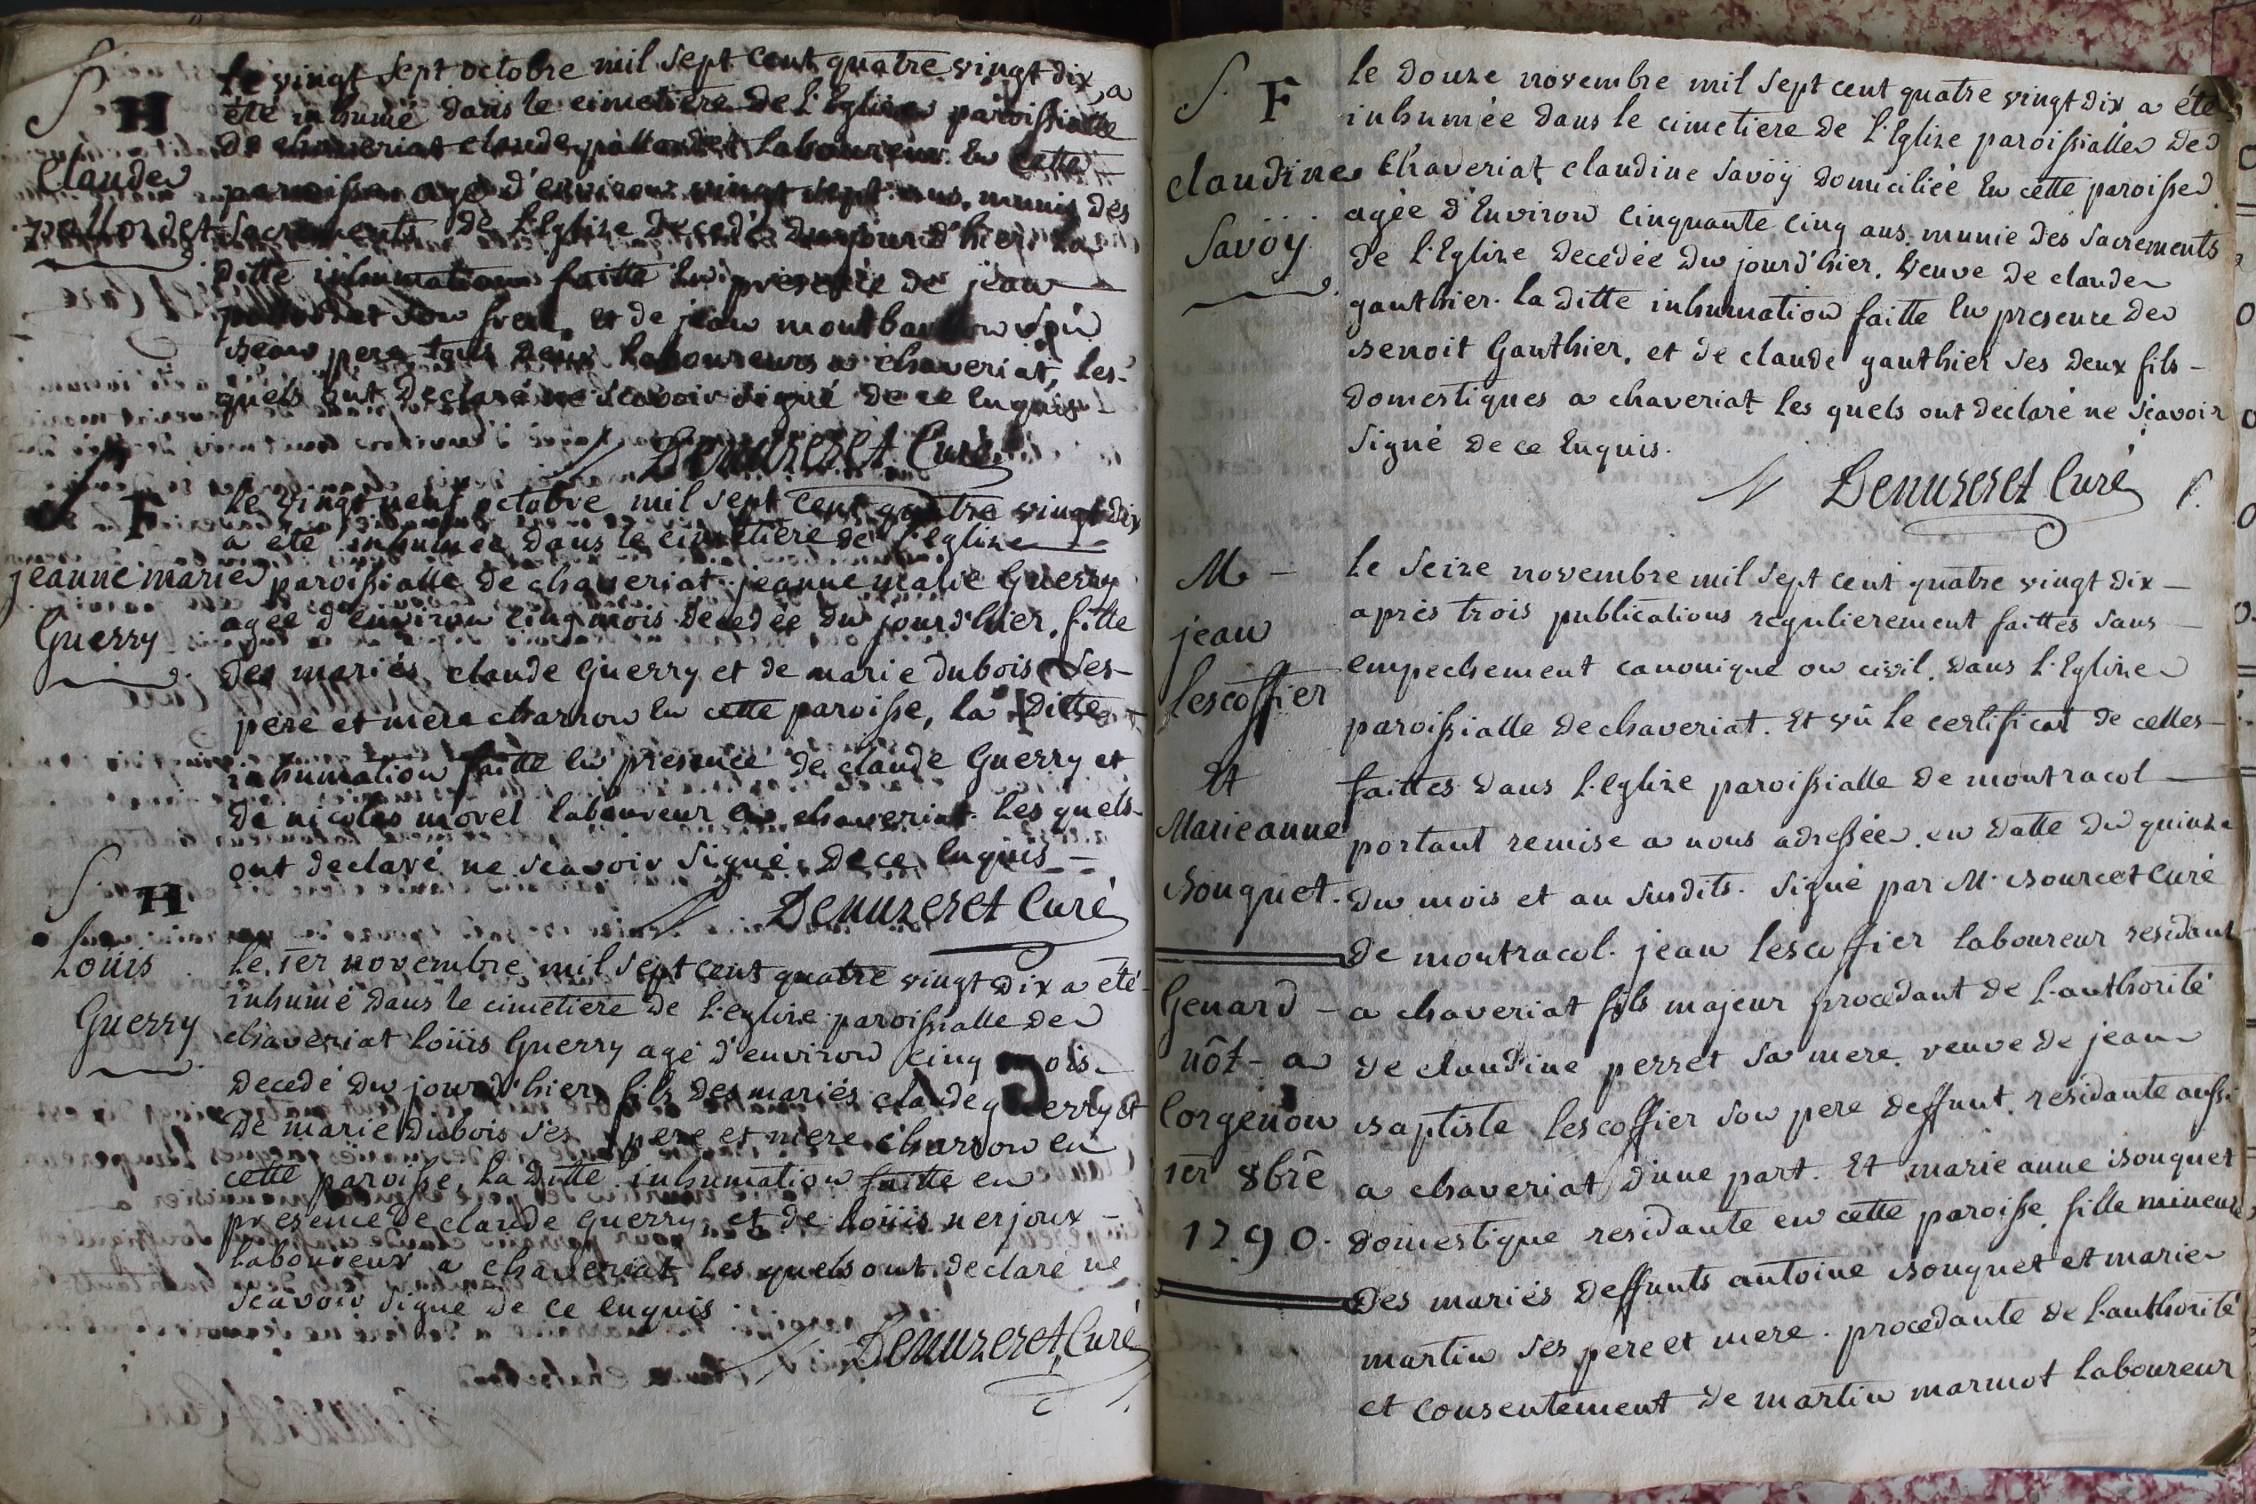 S. H
Claude
pallordet
Le vingt sept octobre mil sept cent quatre vingt dix, a
été inhumé dans le cimetiere de l'Eglise paroissialle
de chaveriat claude pallordet laboureur en cette
paroisse agé d'environ vingt sept ans, munis des
sacrements de l'Eglise decedé du jour d'hier. la
ditte inhumation faitte en presence de jean
pallordet son frere, et de jean montbarbon son
beau pere tous deux laboureurs a chaveriat, les-
quels ont declaré ne sçavoir signé de ce enquis
Denuzeret Curé
S F
jeanne marie
Guerry
Le vingt neuf octobre mil sept cent quatre vingt dix
a été inhumée dans le cimetiere de l'eglize
paroissialle de chaveriat jeanne marie Guerry
agée d'environ cinq mois decedée du jour d'hier, fille
des mariés claude Guerry et de marie dubois ses-
pere et mere charron en cette paroisse, la ditte
inhumation faitte en presence de claude Guerry et
de nicolas morel laboureur a chaveriat les quels-
ont declaré ne scavoir signé de ce enquis -
Denuzeret Curé
S. H
Loüis
Guerry
Le 1er novembre mil sept cent quatre vingt dix a été
inhumé dans le cimetiere de l'eglize paroissialle de
chaveriat loüis Guerry agé d'environ cinq mois
decedé du jour d'hier fils des mariés claude guerry et
de marie dubois ses pere et mere charron en
cette paroisse, la ditte inhumation faitte en
presence de claude guerry, et de loüis nerjoux -
laboureur a chaveriat les quels ont declaré ne
scavoir signé de ce enquis
Denuzeret Curé
S. F
claudine
Savöÿ
le douze novembre mil sept cent quatre vingt dix a été
inhumée dans le cimetiere de l'Eglize paroissialle de
Chaveriat claudine savöÿ domiciliée en cette paroisse
agée d'Environ cinquante cinq ans. munie des sacrements
de l'Eglize decedée du jour d'hier. Veuve de claude
gauthier. la ditte inhumation faitte en presence de
benoit Gauthier, et de claude gauthier ses deux fils -
domestiques a chaveriat les quels ont declaré ne sçavoir
signé de ce enquis.
Denuzeret Curé
M -
jean
lescoffier
Et
Marie anne
bouquet.
Genard -
nôt - a
Corgenon
1er 8bre
1790.
le seize novembre mil sept cent quatre vingt dix -
après trois publications regulierement faittes sans -
empechement canonique ou civil, dans l'Eglize
paroissialle de chaveriat. Et vû le certificat de celles -
faittes dans l'Eglize paroissialle de montracol -
portant remise a nous adressée en datte du quinze
du mois et an susdits. signé par M. bourcet Curé
de montracol. jean lescoffier laboureur residant
a chaveriat fils majeur procedant de l'authorité
de claudine perret sa mere veuve de jean
baptiste lescoffier son pere deffunt, residante aussi
a chaveriat d'une part. Et marie anne bouquet
domestique residante en cette paroisse fille mineure
des mariés deffunts antoine bouquet et marie
martin ses pere et mere. procedante de l'authorité
et consentement de martin marmot laboureur